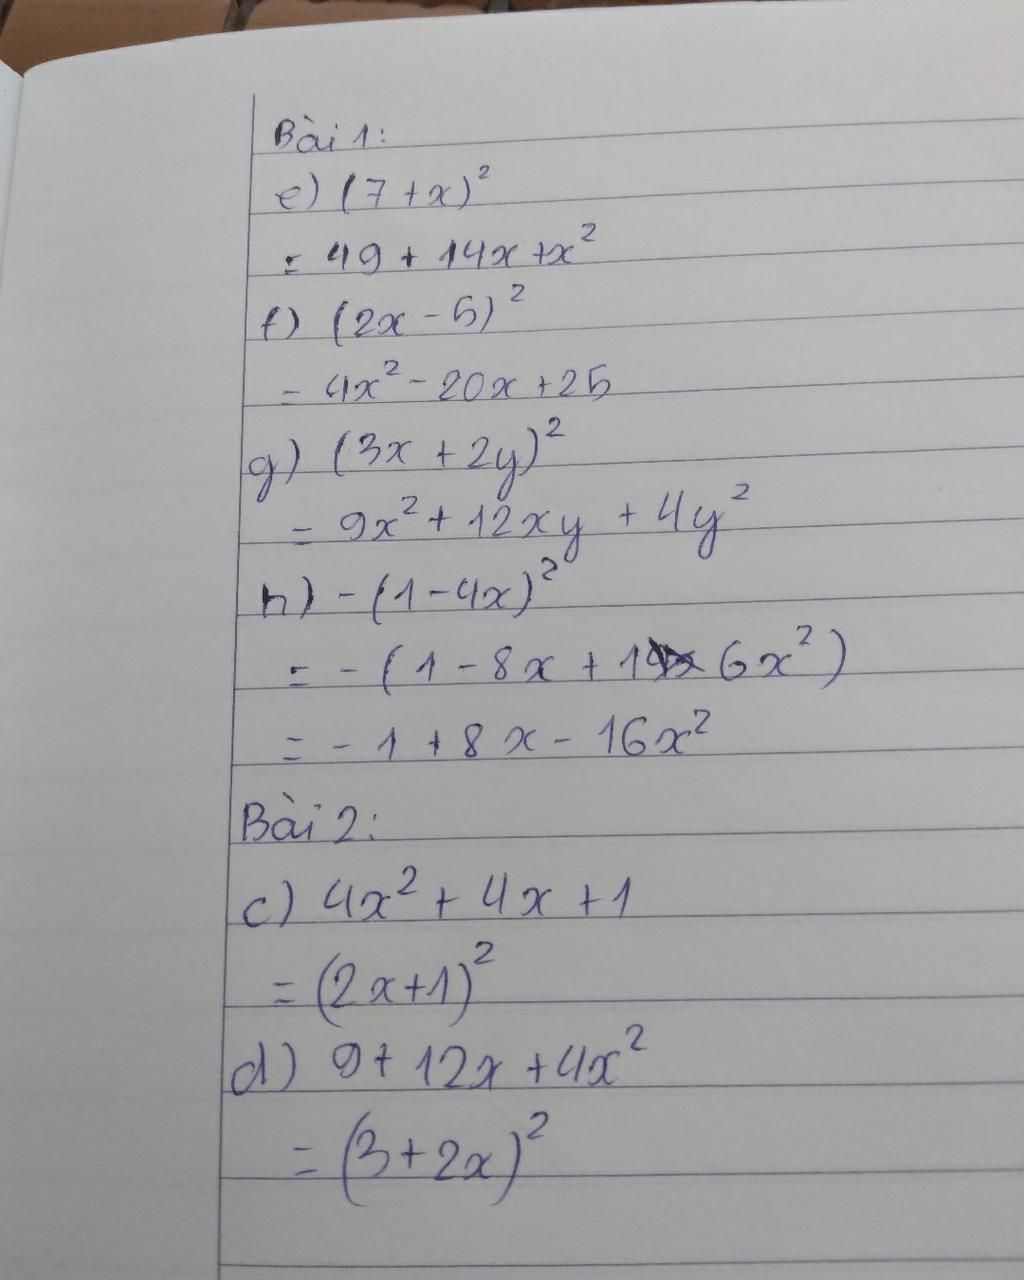 Bài 1:
e) (7 + x)²
= 49 + 14x + x²
f) (2x - 5)²
= 4x² - 20x + 25
g) (3x + 2y)²
= 9x² + 12xy + 4y²
h) - (1 - 4x)²
= - (1 - 8x + 16x²)
= - 1 + 8x - 16x²
Bài 2:
c) 4x² + 4x + 1
= (2x + 1)²
d) 9 + 12x + 4x²
= (3 + 2x)²